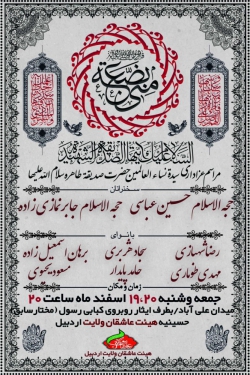 فاطمة بضعة منی
السلام علیک ایتها الصدیقة الشهیدة
مراسم عزاداری سیدة نساء العالمین حضرت صدیقه طاهره سلام الله علیها
سخنرانان
حجة الاسلام حسین عباسی حجة الاسلام جابر غازی زاده
بانوای
رضا شهبازی
مهدی خماری
حامد بامداد
برهان اسمعیل زاده
مسعود یحیوی
زمان و مکان
جمعه وشنبه ۱۹،۲۰ اسفند ماه ساعت ۲۰
میدان علی آباد/بطرف ایثار روبروی کبابی رسول (مختار سابق)
حسینیه هیئت عاشقان ولایت اردبیل
هیئت عاشقان ولایت اردبیل